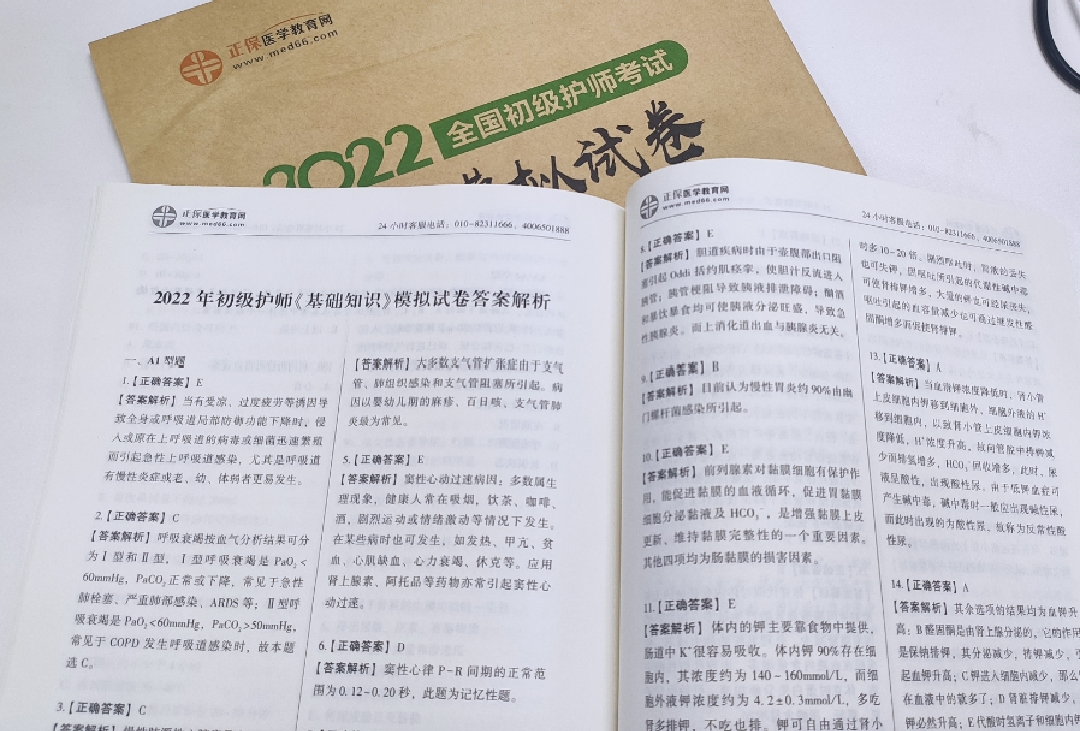 正保医学教育网
www.med66.com
2022 全国初级护师考试
模拟试卷
正保医学教育网
www.med66.com
24小时客服电话：010-82311666，4006501888
2022年初级护师《基础知识》模拟试卷答案解析
一、A1型题
1.【正确答案】E
【答案解析】当有受凉、过度疲劳等诱因导
致全身或呼吸道局部防御功能下降时，侵
入或原在上呼吸道的病毒或细菌迅速繁殖
而引起急性上呼吸道感染，尤其是呼吸道
有慢性炎症或老、幼、体弱者更易发生。
2.【正确答案】C
【答案解析】呼吸衰竭按血气分析结果可分
为Ⅰ型和Ⅱ型，Ⅰ型呼吸衰竭是PaO₂<
60mmHg，PaCO₂正常或下降，常见于急性
肺栓塞、严重肺部感染、ARDS等；Ⅱ型呼
吸衰竭是PaO₂<60mmHg，PaCO₂>50mmHg，
常见于COPD发生呼吸道感染时，故本题
选C。
3.【正确答案】C
【答案解析】大多数支气管扩张症由于支气
管、肺组织感染和支气管阻塞所引起。病
因以婴幼儿期的麻疹、百日咳、支气管肺
炎最为常见。
5.【正确答案】E
【答案解析】窦性心动过速病因：多数属生
理现象，健康人常在吸烟，饮茶、咖啡、
酒，剧烈运动或情绪激动等情况下发生。
在某些病时也可发生，如发热、甲亢、贫
血、心肌缺血、心力衰竭、休克等。应用
肾上腺素、阿托品等药物亦常引起窦性心
动过速。
6.【正确答案】D
【答案解析】窦性心律P-R间期的正常范
围为0.12~0.20秒，此题为记忆性题。
正保医学教育网
www.med66.com
24小时客服电话：010-82311666，4006501888
8.【正确答案】E
【答案解析】胆道疾病时由于壶腹部出口阻
塞引起Oddi括约肌痉挛，使胆汁反流进入
胰管；胰管梗阻导致胰液排泄障碍；酗酒
和暴饮暴食均可使胰液分泌旺盛，导致急
性胰腺炎。而上消化道出血与胰腺炎无关。
9.【正确答案】B
【答案解析】目前认为慢性胃炎约90%由幽
门螺杆菌感染所引起。
10.【正确答案】E
【答案解析】前列腺素对黏膜细胞有保护作
用，能促进黏膜的血液循环，促进胃黏膜
细胞分泌黏液及HCO₃⁻，是增强黏膜上皮
更新、维持黏膜完整性的一个重要因素。
其他四项均为肠黏膜的损害因素。
11.【正确答案】E
【答案解析】体内的钾主要靠食物中提供，
肠道中K⁺很容易吸收。体内钾90%存在细
胞内，其浓度约为140~160mmol/L，而细
胞外液钾浓度约为4.2±0.3mmol/L，多吃
肾多排钾，不吃也排。钾可自由通过肾小
时多10~20倍。剧烈呕吐时，胃液的丢失
也可失钾，因呕吐所引起的代谢性碱中毒
可使肾排钾增多，大量的钾也可经尿丢失，
呕吐引起的血容量减少也可通过继发性醛
固酮增多而促使肾排钾。
13.【正确答案】A
【答案解析】当血清钾浓度降低时，肾小管
上皮细胞内钾移到细胞外，细胞外液的H⁺
移到细胞内，以致肾小管上皮细胞内钾浓
度降低，H⁺浓度升高，故向管腔中排钾减
少而排氢增多，HCO₃⁻回收增多，此时，尿
液呈酸性，出现酸性尿。由于低钾血症可
产生碱中毒，碱中毒时一般应出现碱性尿，
而此时出现的为酸性尿，故称为反常性酸
性尿。
14.【正确答案】A
【答案解析】其余选项的结果均为血钾升
高：B醛固酮是由肾上腺分泌的，它的作用
是保钠排钾，其分泌减少，排钾减少，
起血钾升高；C钾进入细胞内减少，那么
在血液中的就多了；D肾脏排钾减少，
钾必然升高；E代酸时氢离子和细胞内钾